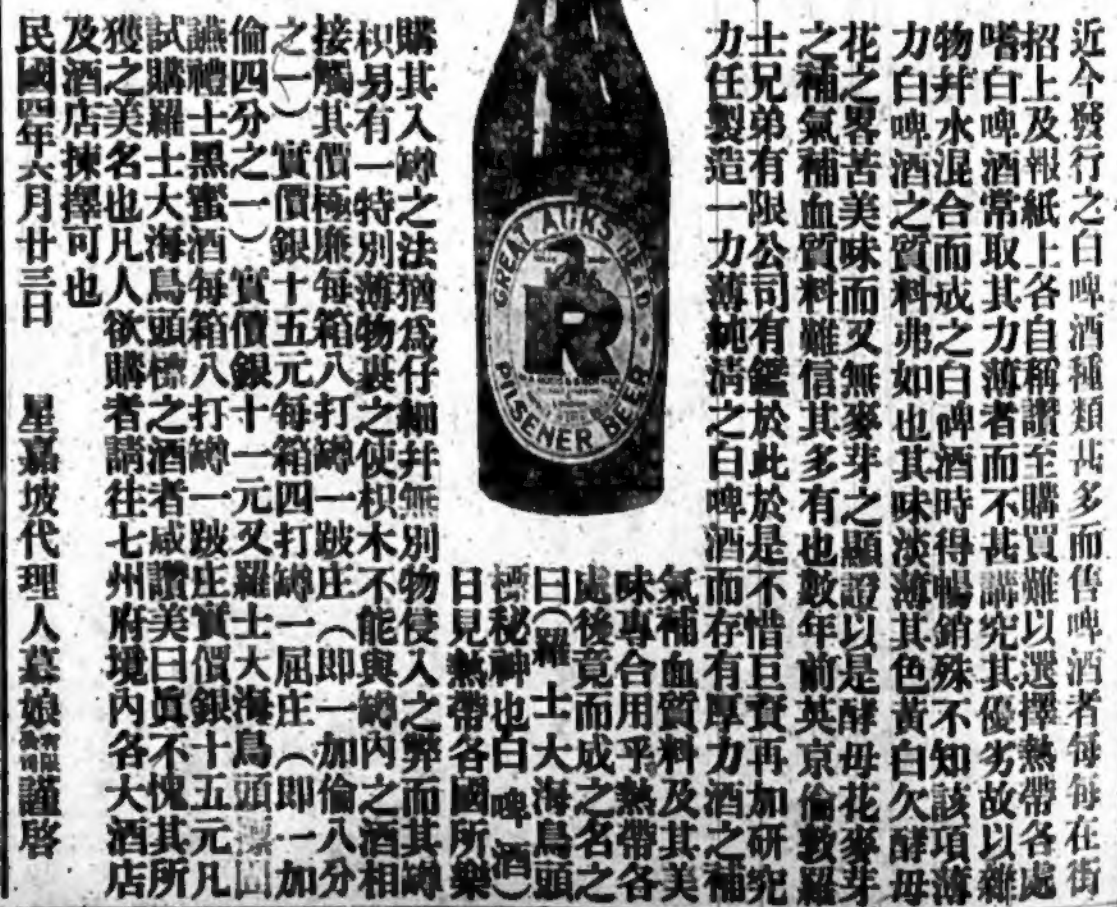 近今發行之白啤酒種類甚多而售啤酒者每每在街
招上及報紙上各自稱讚至購買難以選擇熱帶各處
嗜白啤酒常取其力薄者而不甚講究其優劣故以雜
物幷水混合而成之白啤酒時得暢銷殊不知該項薄
力白啤酒之質料弗如也其味淡薄其色黃白欠酵母
花之畧苦美味而又無麥芽之顯證以是酵母花麥芽
之補氣補血質料難信其多有也數年前英京倫敦羅
士兄弟有限公司有鑑於此於是不惜巨資再加研究
力任製造一力薄純淸之白啤酒而存有厚力酒之補
GREAT AUK'S HEAD
R
PILSENER BEER
氣補血質料及其美
味專合用乎熱帶各
處後竟而成之名之
曰（羅士大海鳥頭
標秘神也白啤酒）
日見熱帶各國所樂
購其入罇之法猶爲仔細幷無別物侵入之弊而其罇
枳易有一特別薄物裹之使枳木不能與罇內之酒相
接觸其價極廉每箱八打罇一跛庄（即一加倫八分
之一）實價銀十五元每箱四打罇一屈庄（即一加
倫四分之一）實價銀十一元又羅士大海鳥頭標
讌禮士黑蜜酒每箱八打罇一跛庄實價銀十五元凡
試購羅士大海鳥頭標之酒者咸讚美曰眞不愧其所
獲之美名也凡人欲購者請往七州府境內各大酒店
及酒店揀擇可也
民國四年六月廿三日 星嘉坡代理人慕娘謹啓